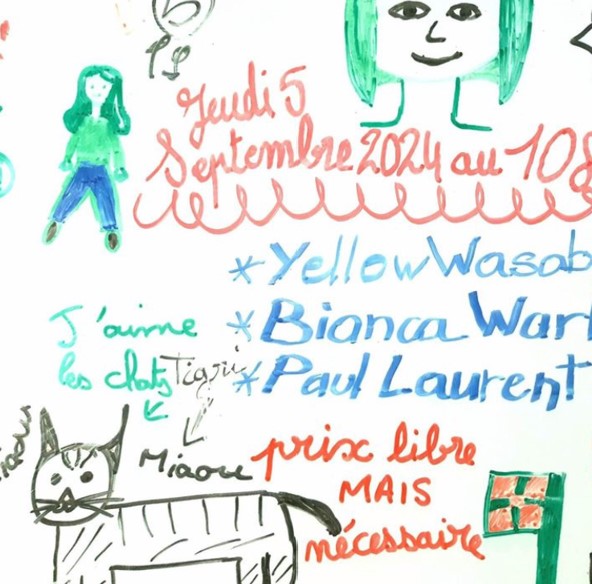 Jeudi 5
Septembre 2024 au 108
* Yellow Wasab
* Bianca War
* Paul Laurent
J'aime
les chats
Tigri
Miaou
prix libre
MAIS
nécessaire